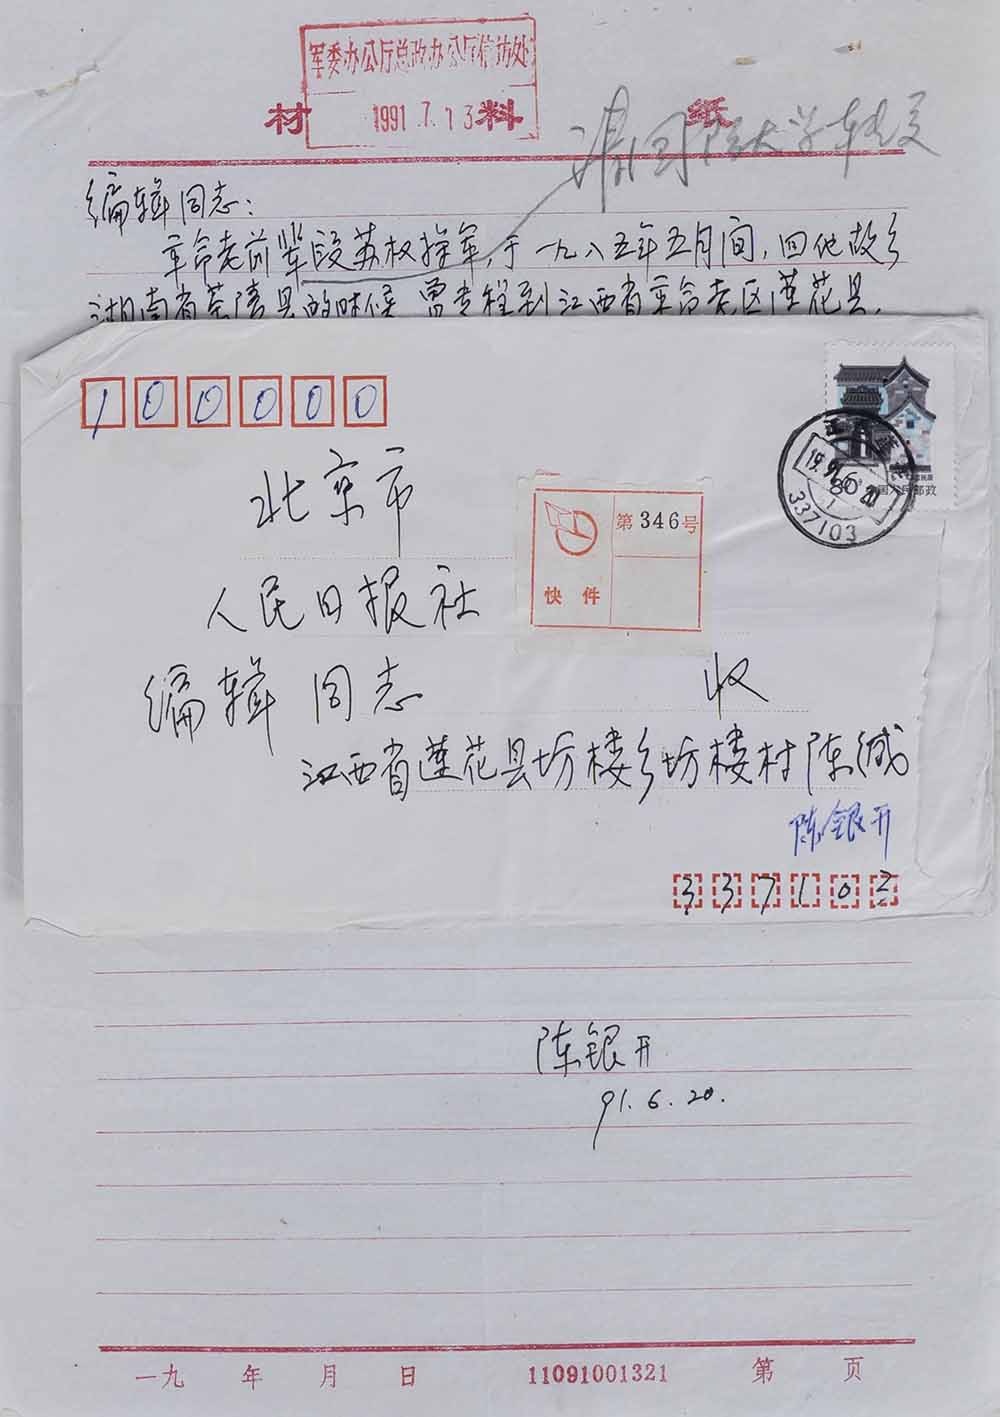 军委办公厅总政办公厅信访处
1991.7.13
材料纸
请国防大学转交
编辑同志:
革命老前辈段苏权将军,于一九八五年五月间,回他故乡
湖南省茶陵县的时候 曾专程到江西省革命老区莲花县,
100000
80
中国人民邮政
337103
北京市
第346号
快件
人民日报社
编辑同志 收
江西省莲花县坊楼乡坊楼村陈缄
陈银开
337103
陈银开
91.6.20.
一九 年 月 日 11091001321 第 页